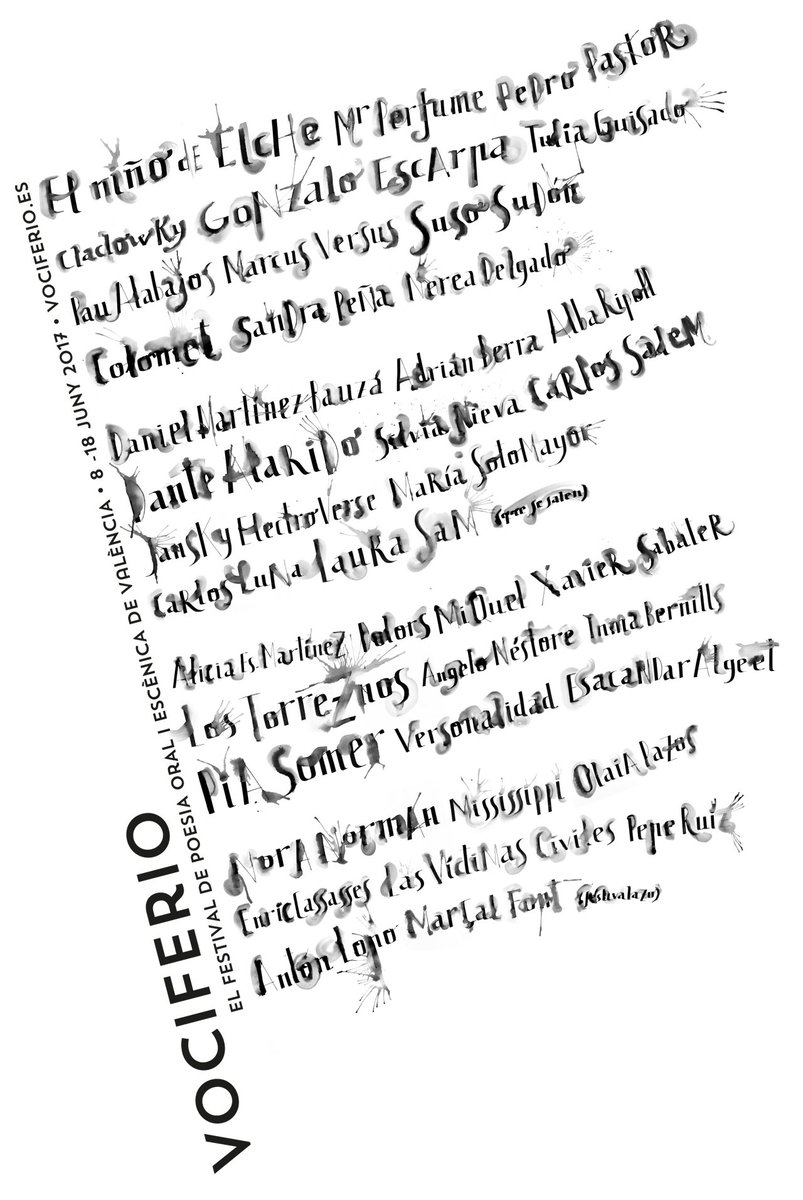 El niño de Elche Mr Perfume Pedro Pastor
Cladowky Gonzalo Escarpa Tulia Guisado
Pau Alabajos Marcus Versus Suso Sudón
Colomet Sandra Peña Nerea Delgado
Daniel Martínez Bauzá Adrián Berra Alba Ripoll
Dante Alarido Silvia Nieva Carlos Salem
Jansky Hectroverse María Solo Mayor
Carlos Luna Laura Sam (que se salen)
Alicia Es. Martínez Dolors Miquel Xavier Sabater
Los Torreznos Angelo Néstore Inma Bernills
Pila Somer Versonalidad Escandar Algeet
Nora Norman Mississippi Olaialazos
Eric Lassasses Las Vidinas Civiles Pepe Ruiz
Antón Lopo Marçal Font (festivalazo)
VOCIFERIO
EL FESTIVAL DE POESIA ORAL I ESCÈNICA DE VALÈNCIA • 8 -18 JUNY 2017 • VOCIFERIO.ES